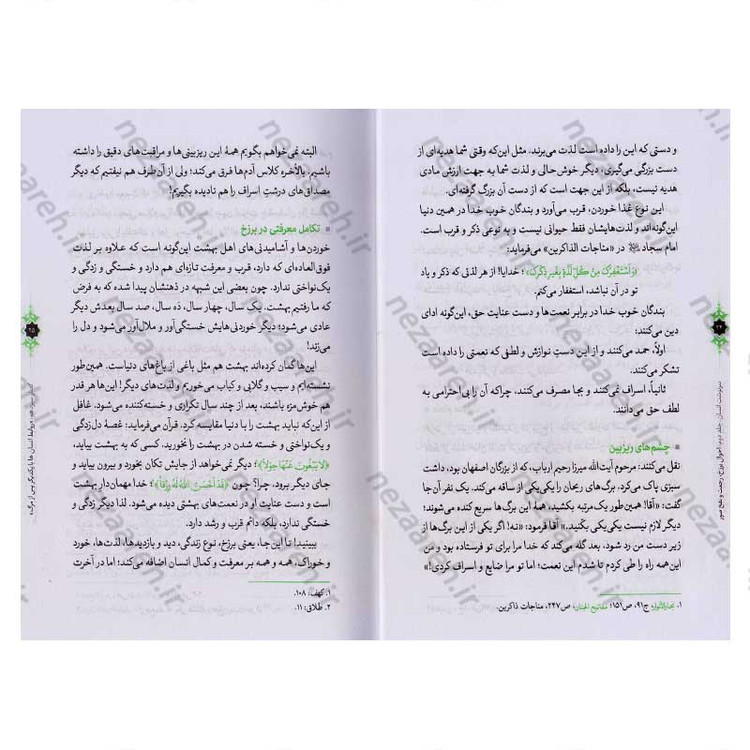 و دستی که این را داده است لذت می‌برند. مثل این‌که وقتی شما هدیه‌ای از
دست بزرگی می‌گیری، دیگر خوش حالی و لذت شما به جهت ارزش مادی
هدیه نیست، بلکه از این جهت است که از دست آن بزرگ گرفته‌ای.
این نوع غذا خوردن، قرب می‌آورد و بندگان خوب خدا در همین دنیا
این‌گونه‌اند و لذت‌هایشان فقط حیوانی نیست و به نوعی ذکر و قرب است.
امام سجاد در «مناجات الذاکرین» می‌فرماید:
«وَ اَسْتَغْفِرُکَ مِنْ کُلِّ لَذَّةٍ بِغَیْرِ ذِکْرِکَ»؛ خدایا! از هر لذتی که ذکر و یاد
تو در آن نباشد، استغفار می‌کنم.
بندگان خوب خدا در برابر نعمت‌ها و دست عنایت حق، این‌گونه ادای
دین می‌کنند:
اولاً، حمد می‌کنند و از این دستِ نوازش و لطفی که نعمتی را داده است
تشکر می‌کنند.
ثانیاً، اسراف نمی‌کنند و بجا مصرف می‌کنند، چراکه آن را بی‌احترامی به
لطف حق می‌دانند.
چشم‌های ریزبین
نقل می‌کنند: مرحوم آیت‌الله میرزا رحیم ارباب، که از بزرگان اصفهان بود، داشت
سبزی پاک می‌کرد. برگ‌های ریحان را یکی‌یکی از ساقه می‌کند. یک نفر آن‌جا
گفت: «آقا! همین طور یک مرتبه بکشید، همهٔ این برگ‌ها سریع کنده می‌شوند؛
دیگر لازم نیست یکی‌یکی بکنید.» آقا فرمود: «نه! اگر یکی از این برگ‌ها به
زیر دست من رد شود، بعد گله می‌کند که خدا مرا برای تو فرستاده بود و من
این‌همه راه را طی کردم تا شدم این نعمت؛ اما تو مرا ضایع و اسراف کردی!»
۱. بحارالأنوار، ج۹۱، ص۱۵۱؛ مفاتیح الجنان، ص۲۴۷، مناجات ذاکرین.
سرنوشت انسان، جلد دوم: احوال برزخ، رجعت و نفخ صور
البته نمی‌خواهم بگویم همهٔ این ریزبینی‌ها و مراقبت‌های دقیق را داشته
باشیم. بالأخره کلاس آدم‌ها فرق می‌کند؛ ولی از آن طرف هم نیفتیم که دیگر
مصداق‌های درشتِ اسراف را هم نادیده بگیریم!
تکامل معرفتی در برزخ
خوردن‌ها و آشامیدنی‌های اهل بهشت این‌گونه است که علاوه بر لذت
فوق‌العاده‌ای که دارد، قرب و معرفت تازه‌ای هم دارد و خستگی و زدگی و
یک‌نواختی ندارد. چون بعضی این شبهه در ذهنشان پیدا شده که به فرض
که ما رفتیم بهشت. یک سال، چهار سال، ده سال، صد سال بعدش دیگر
عادی می‌شود؛ دیگر خوردنی‌هایش خستگی‌آور و ملال‌آور می‌شود و دل را
می‌زند!
این‌ها گمان کرده‌اند بهشت هم مثل باغی از باغ‌های دنیاست. همین‌طور
نشسته‌ایم و سیب و گلابی و کباب می‌خوریم و لذت‌های دیگر! این‌ها هر قدر
هم خوش‌مزه باشند، بعد از چند سال تکراری و خسته‌کننده می‌شود. غافل
از این‌که نباید بهشت را با دنیا مقایسه کرد. قرآن می‌فرماید: غصهٔ دل‌زدگی و
یک‌نواختی و خسته شدن در بهشت را نخورید. کسی که به بهشت بیاید،
«لَا یَبْغُونَ عَنْهَا حِوَلاً»؛ دیگر نمی‌خواهد از جایش تکان بخورد و بیرون بیاید و
جای دیگر برود. چرا؟ چون «قَدْ أَحْسَنَ اللَّهُ لَهُ رِزْقاً»؛ خدا مهمان‌دار بهشت
است و دست عنایت او در نعمت‌های بهشتی دیده می‌شود. لذا دیگر زدگی و
خستگی ندارد، بلکه دائم قرب و رشد دارد.
ببینید! تا این‌جا، یعنی برزخ، نوع زندگی، دید و بازدیدها، لذت‌ها، خورد
و خوراک، همه و همه بر معرفت و کمال انسان اضافه می‌کند؛ اما در آخرت
۱. کهف: ۱۰۸.
۲. طلاق: ۱۱.
nezaareh.ir